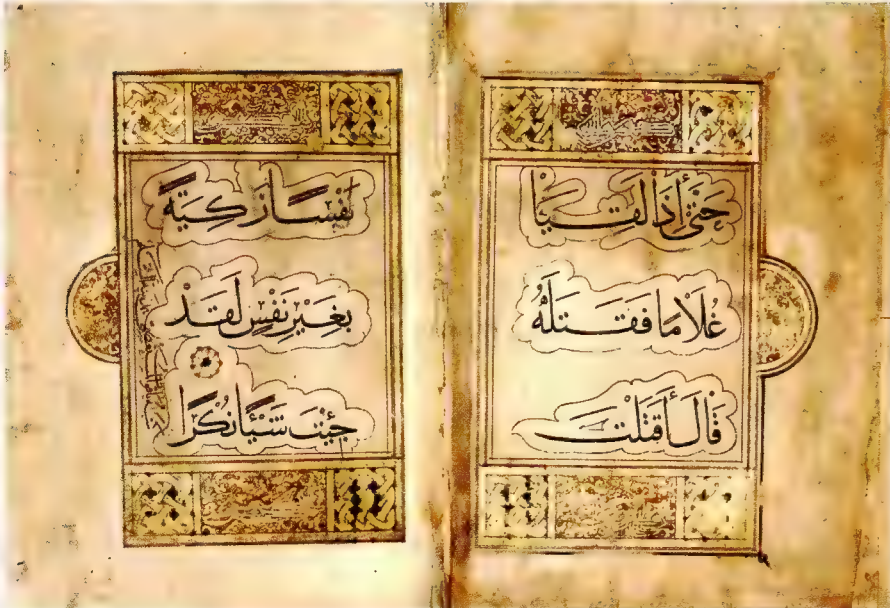 حَتَّى أِذَا لَقِيَا
غُلَامًا فَقَتَلَهُ
قَالَ أَقَتَلْتَ
نَفْسًا زَكِيَّةً
بِغَيْرِ نَفْسٍ لَقَدْ
جِئْتَ شَيْئًا نُكْرًا